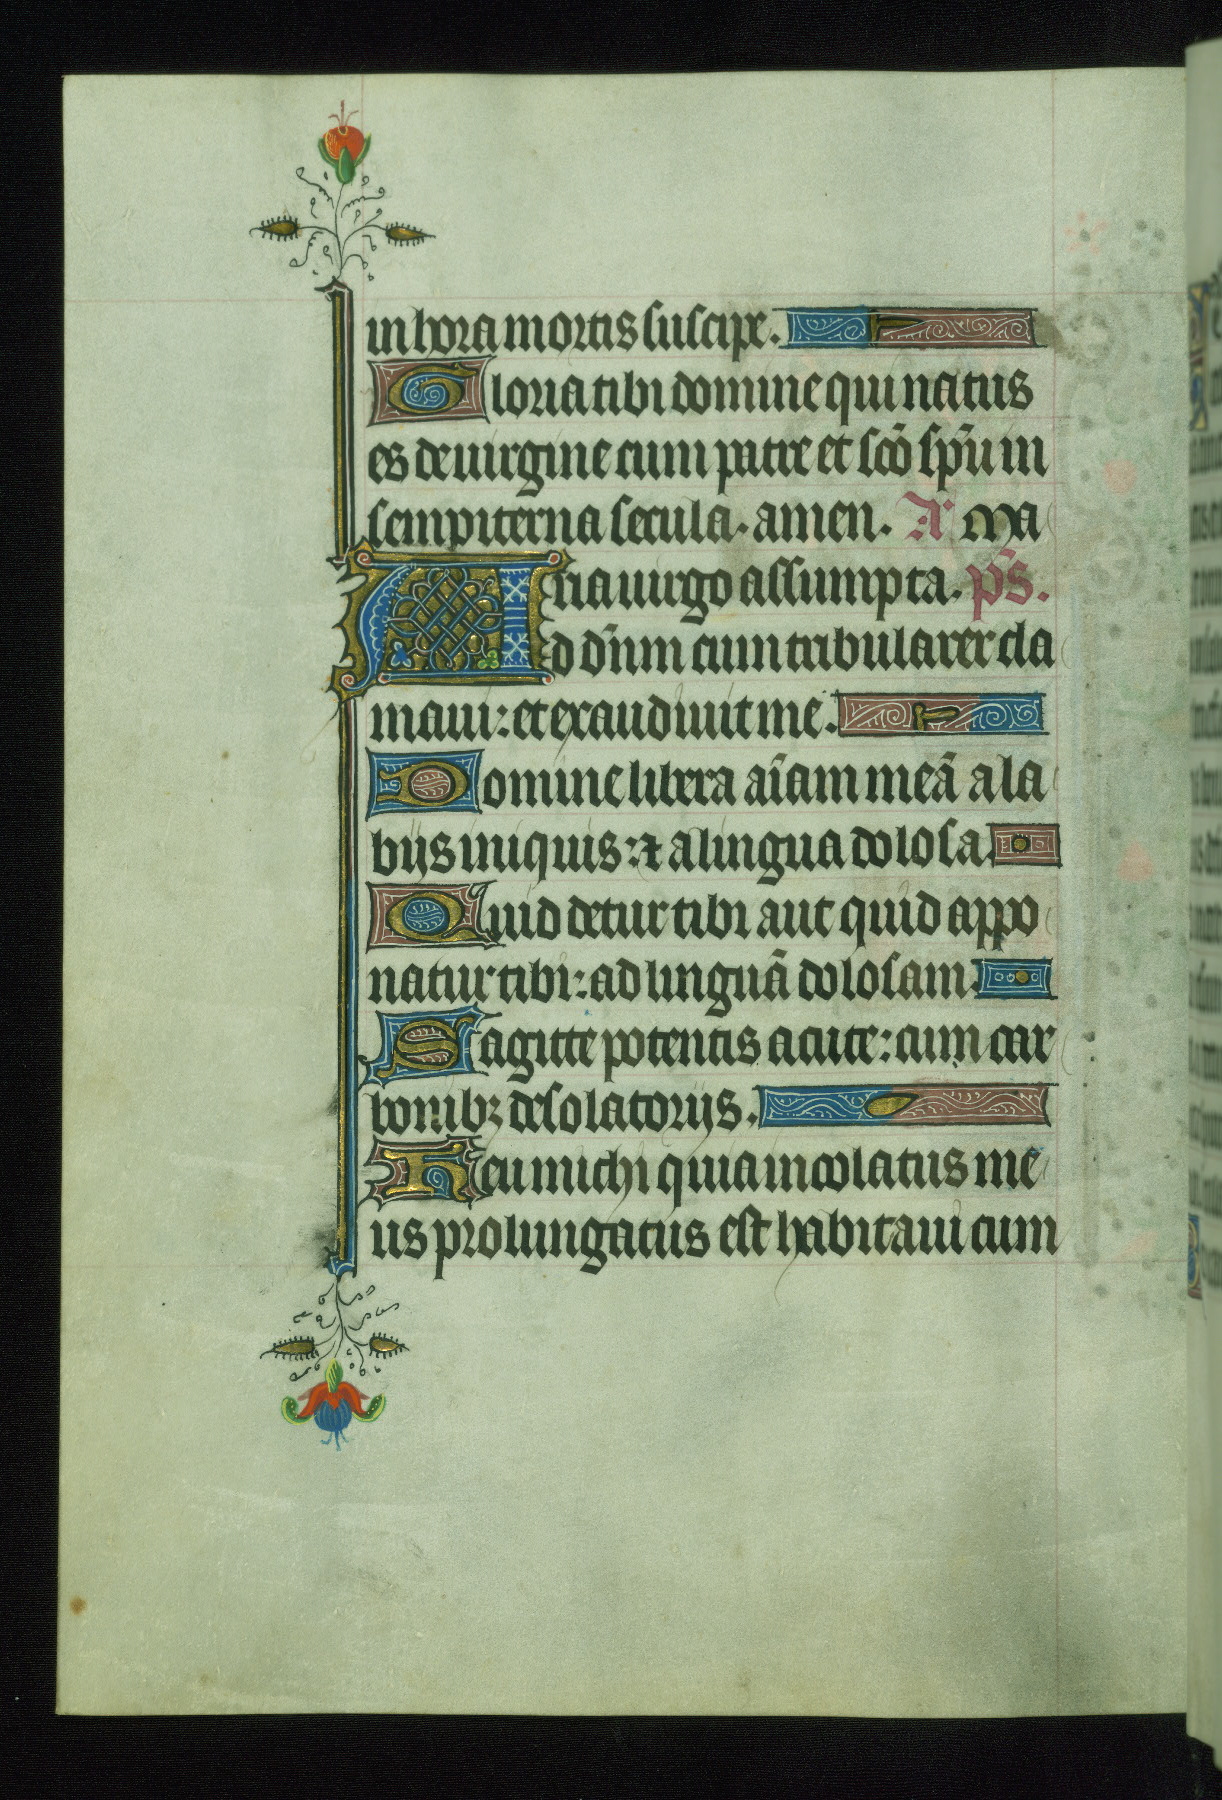 in hora mortis suscipe.
Gloria tibi domine qui natus
es de uirgine cum patre et scō spū in
sempiterna secula. amen. A' Ma
ria uirgo assumpta. ps̄.
Ad dn̄m cum tribularer cla
maui: et exaudiuit me.
Domine libera aīam meā a la
bijs iniquis: ⁊ a lingua dolosa.
Quid detur tibi aut quid appo
natur tibi: ad linguā dolosam.
Sagitte potentis acute: cum car
bonibꝫ desolatorijs.
Heu michi quia incolatus me
us prolungatus est habitaui cum